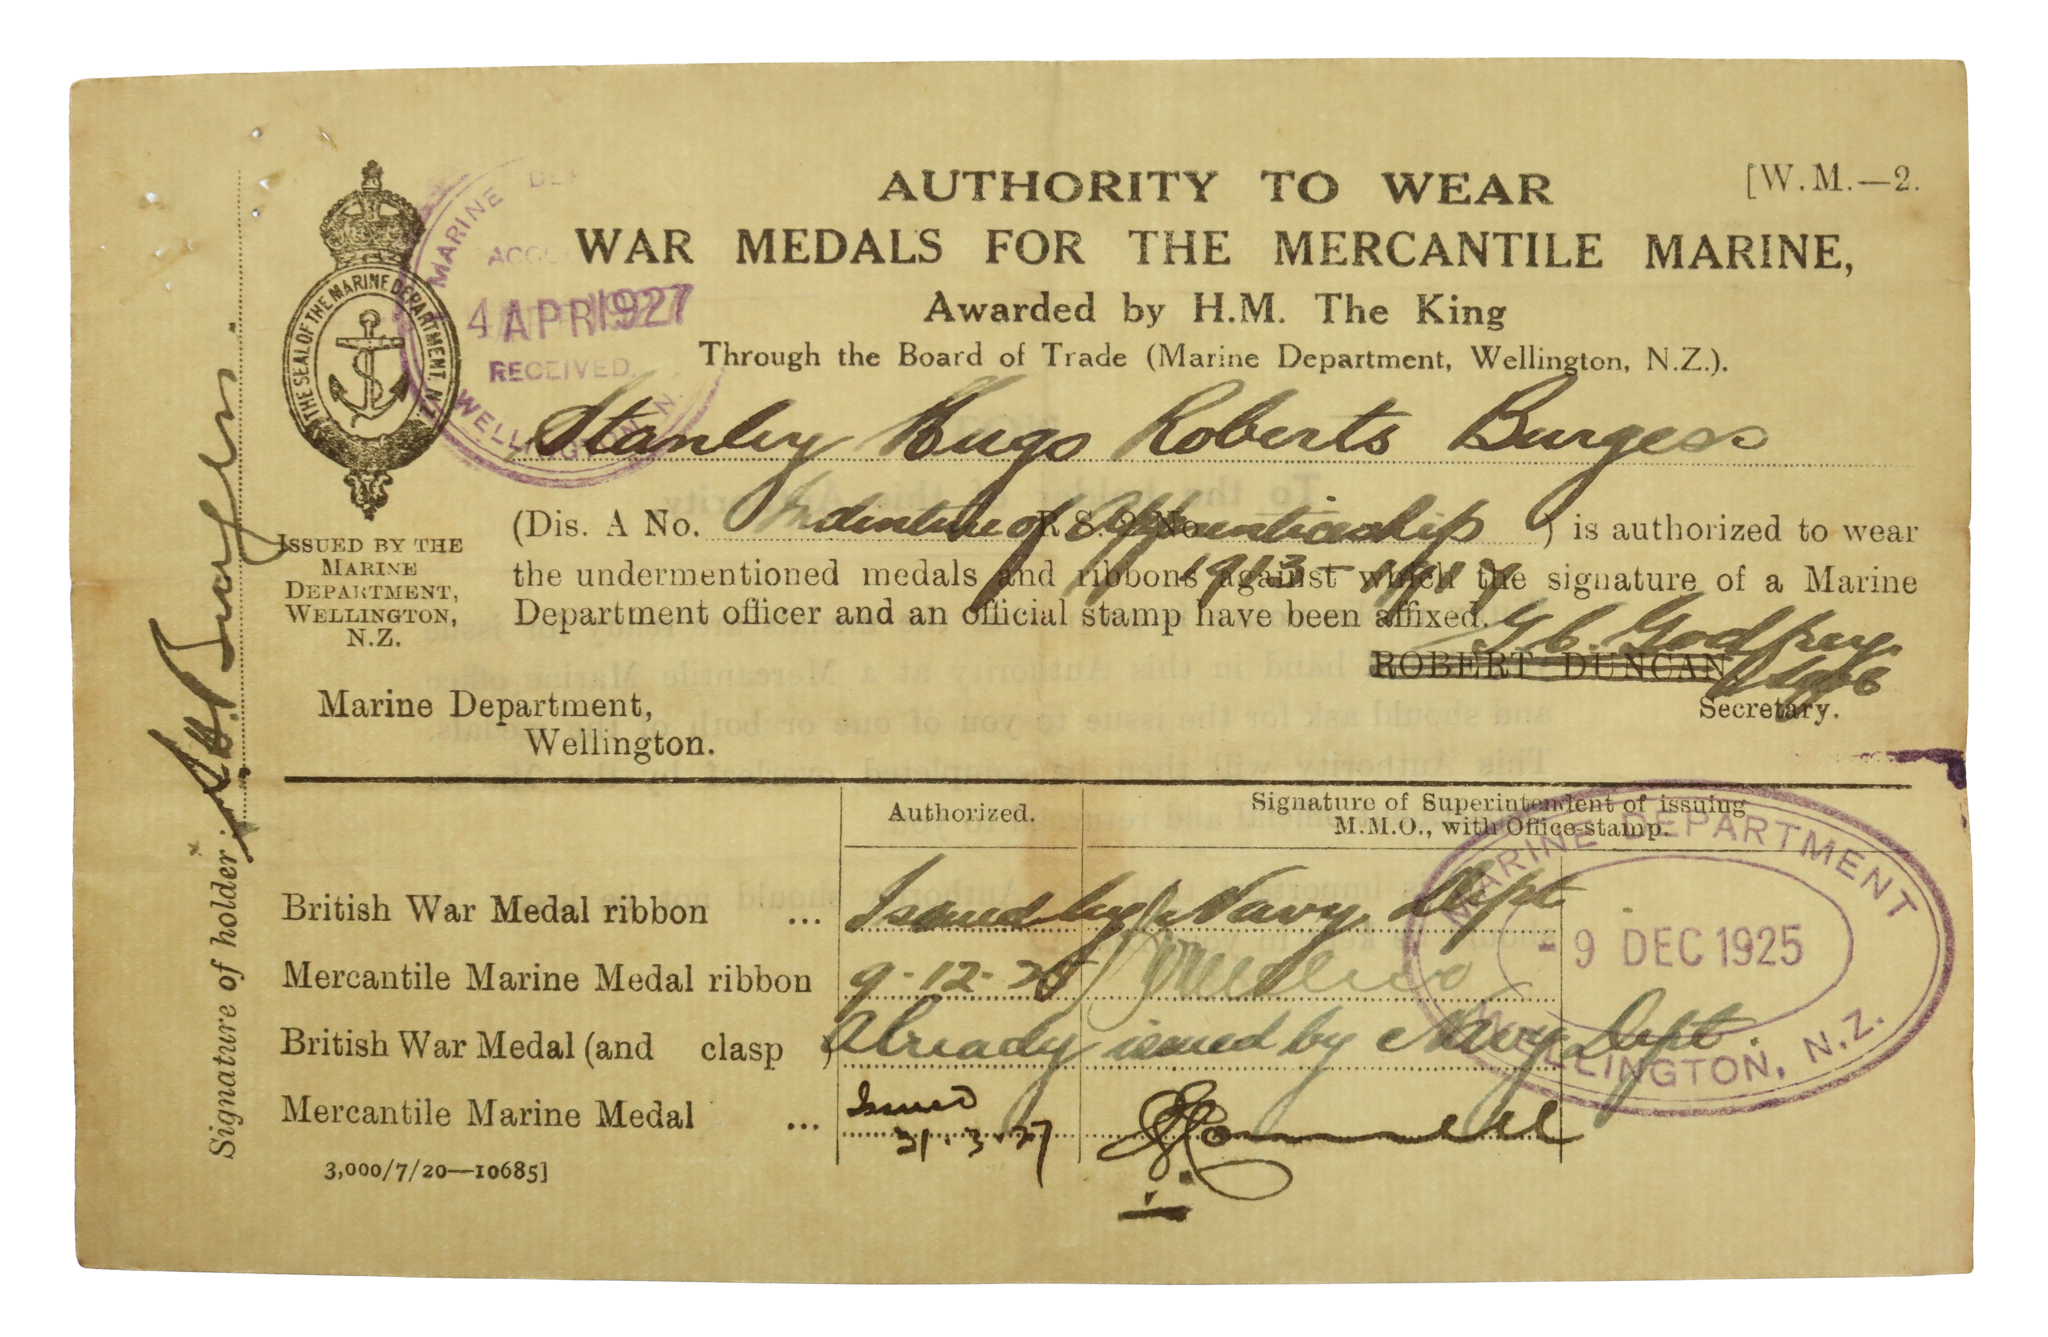 AUTHORITY TO WEAR
[W.M.—2.
WAR MEDALS FOR THE MERCANTILE MARINE,
Awarded by H.M. The King
Through the Board of Trade (Marine Department, Wellington, N.Z.).
THE SEAL OF THE MARINE DEPARTMENT, N.Z.
MARINE
4 APR 1927
RECEIVED
WELLINGTON N.
Stanley Hugo Roberts Burgess
(Dis. A No. Indenture of Apprenticeship R.S. 2 No. ) is authorized to wear
1913-1917
the undermentioned medals and ribbons against which the signature of a Marine
Department officer and an official stamp have been affixed.
ISSUED BY THE
MARINE
DEPARTMENT,
WELLINGTON,
N.Z.
G C Godfrey
ROBERT DUNCAN,
Secretary.
Marine Department,
Wellington.
Signature of holder: S.H.R. Burgess
Authorized.
Signature of Superintendent of issuing
M.M.O., with Office-stamp.
British War Medal ribbon ... Issued by Navy Dept
Mercantile Marine Medal ribbon 9-12-25
British War Medal (and clasp ) Already issued by Navy Dept.
Mercantile Marine Medal ... Issued
31.3.27
MARINE DEPARTMENT
- 9 DEC 1925
WELLINGTON, N.Z.
3,000/7/20—10685]